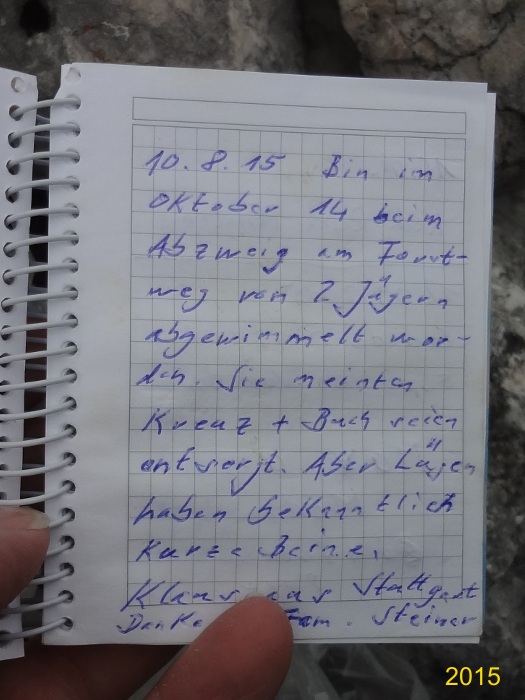 10.8.15 Bin im
Oktober 14 beim
Abzweig am Forst-
weg von 2 Jägern
abgewimmelt wor-
den. Sie meinten
Kreuz + Buch seien
entsorgt. Aber Lügen
haben bekanntlich
Kurze Beine.
Klaus aus Stuttgart
Danke Fam. Steiner
2015